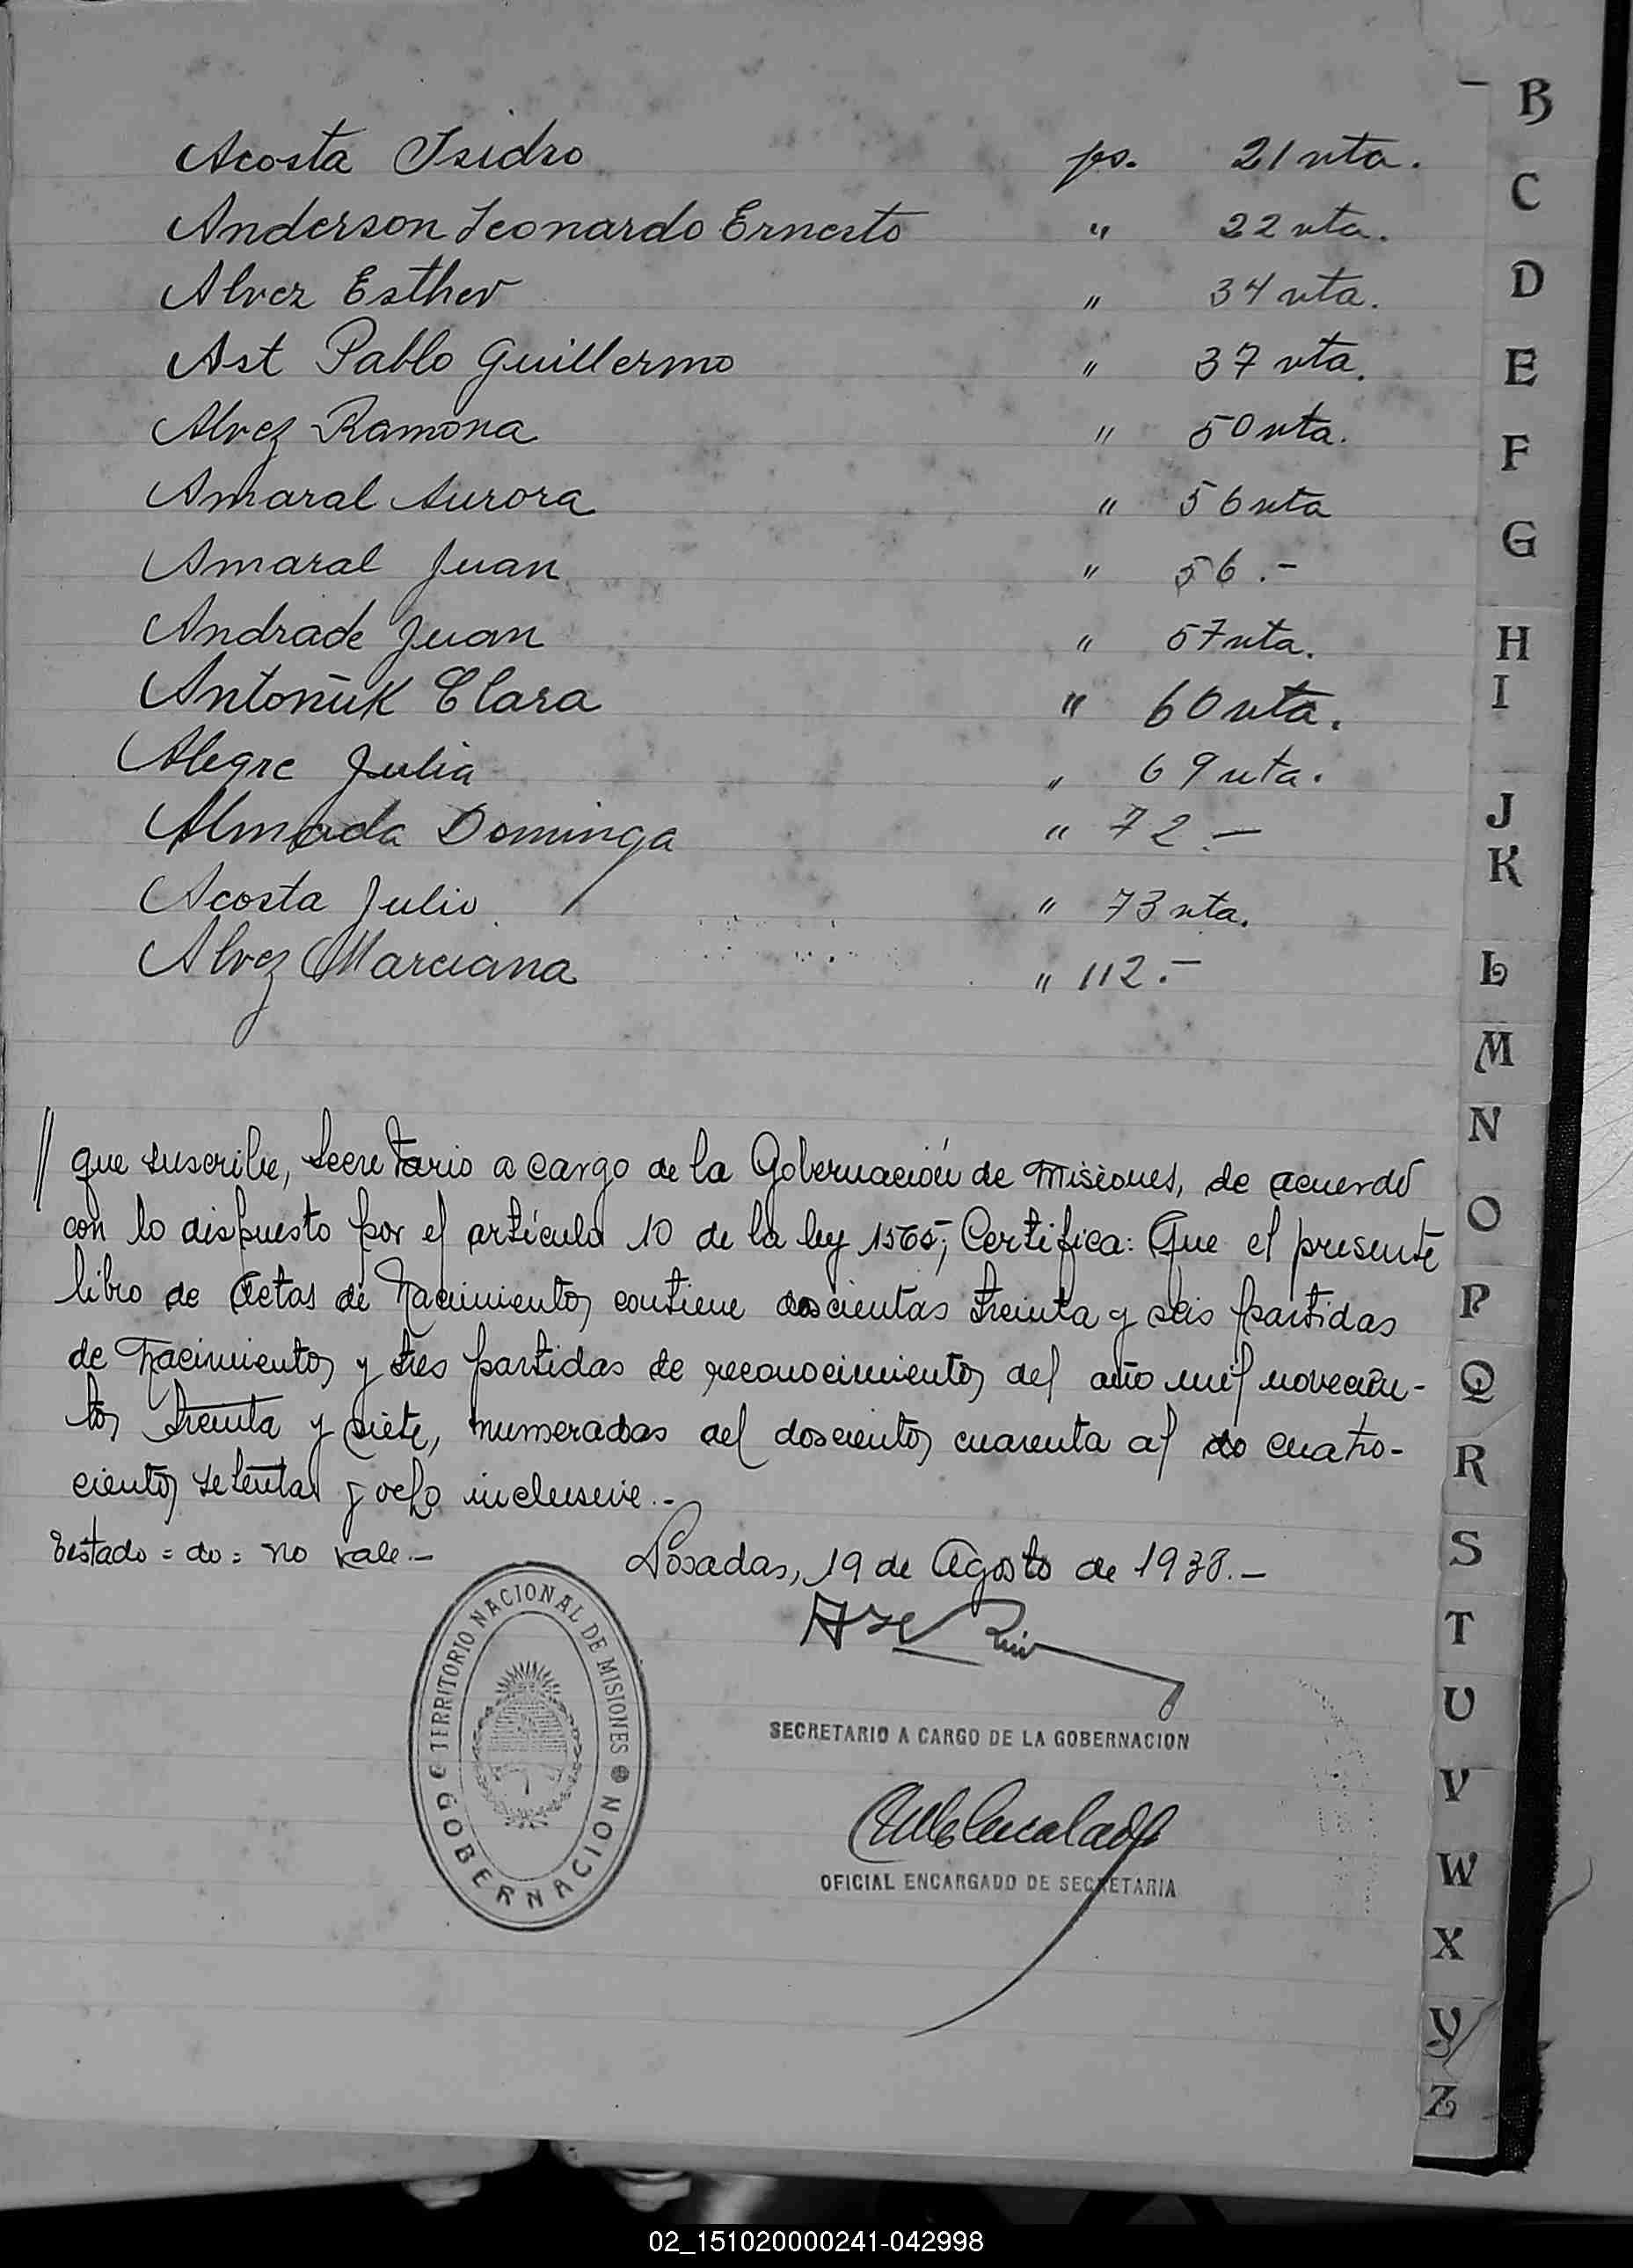 Acosta Isidro ps. 21 vta.
Anderson Leonardo Ernesto " 22 vta.
Alvez Esther " 34 vta.
Ast Pablo Guillermo " 37 vta.
Alvez Ramona " 50 vta.
Amaral Aurora " 56 vta
Amaral Juan " 56.-
Andrade Juan " 57 vta.
Antoniuk Clara " 60 vta.
Alegre Julia " 69 vta.
Almada Dominga " 72.-
Acosta Julio " 73 vta.
Alvez Marciana " 112.-
// que suscribe, Secretario a cargo de la Gobernación de Misiones, de acuerdo
con lo dispuesto por el artículo 10 de la ley 1565; Certifica: Que el presente
libro de Actas de Nacimientos contiene doscientas treinta y seis partidas
de Nacimientos y tres partidas de reconocimientos del año mil novecien-
tos treinta y siete, numeradas del doscientos cuarenta al do cuatro-
cientos setenta y ocho inclusive.-
Testado = do = no vale.-
Posadas, 19 de Agosto de 1938.-
TERRITORIO NACIONAL DE MISIONES
GOBERNACION
SECRETARIO A CARGO DE LA GOBERNACION
OFICIAL ENCARGADO DE SECRETARIA
B
C
D
E
F
G
H
I
J
K
L
M
N
O
P
Q
R
S
T
U
V
W
X
Y
Z
02_151020000241-042998